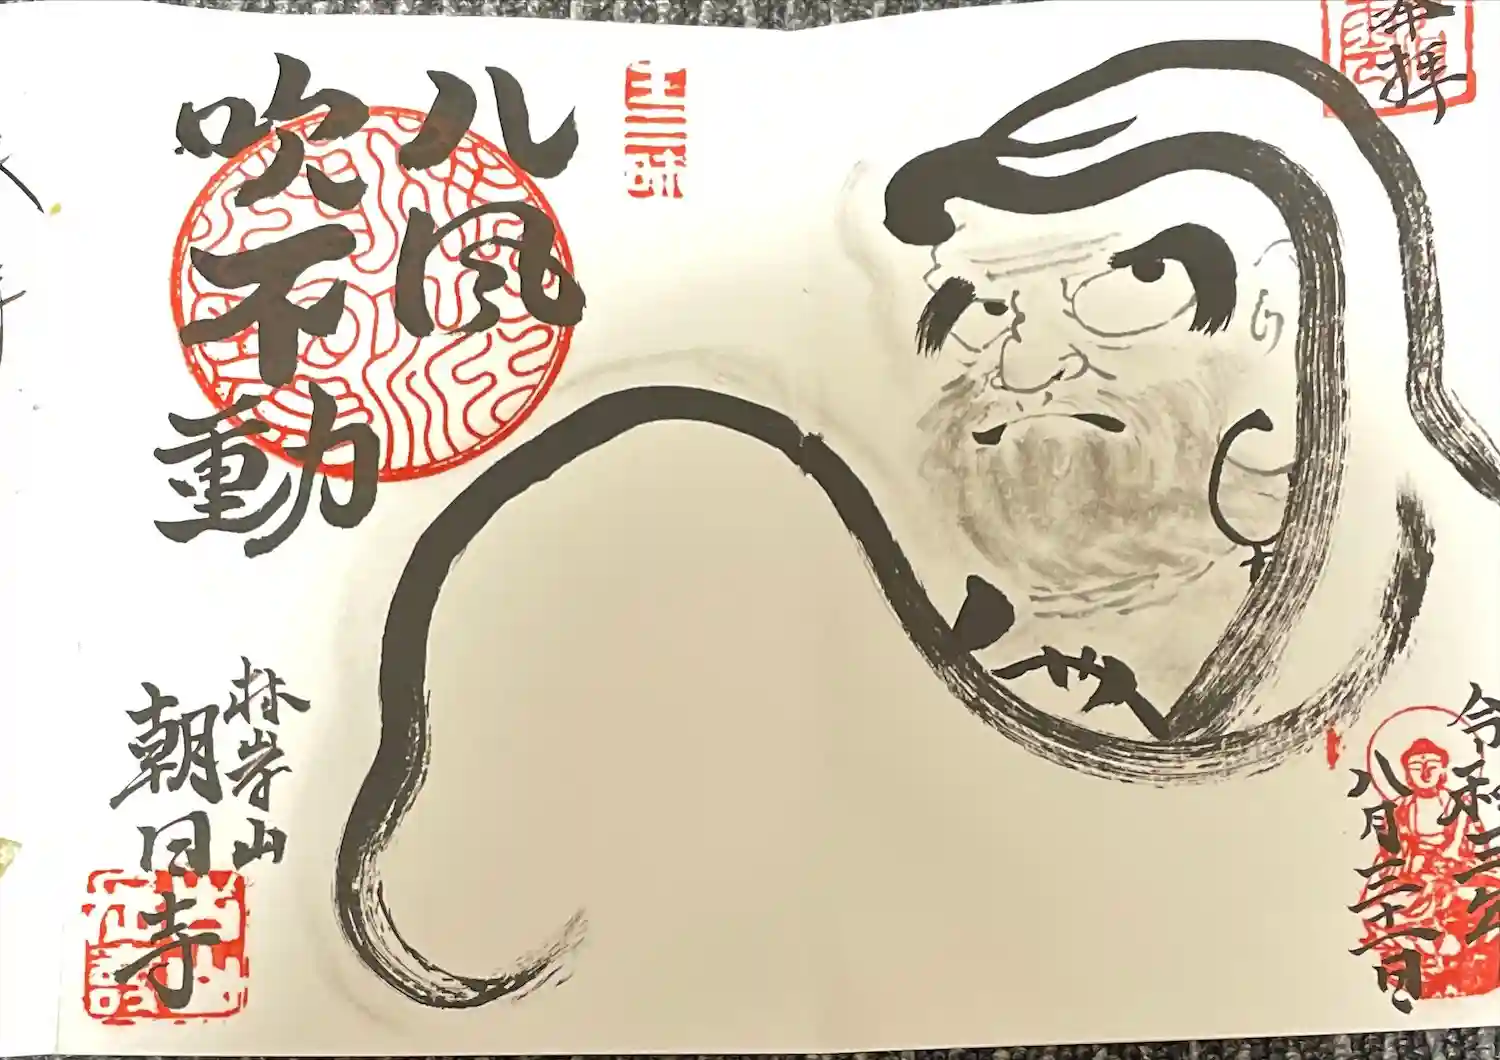 奉拝
令和三年
八月三十一日
王三昧
八風
吹不動
林岸山
朝日寺